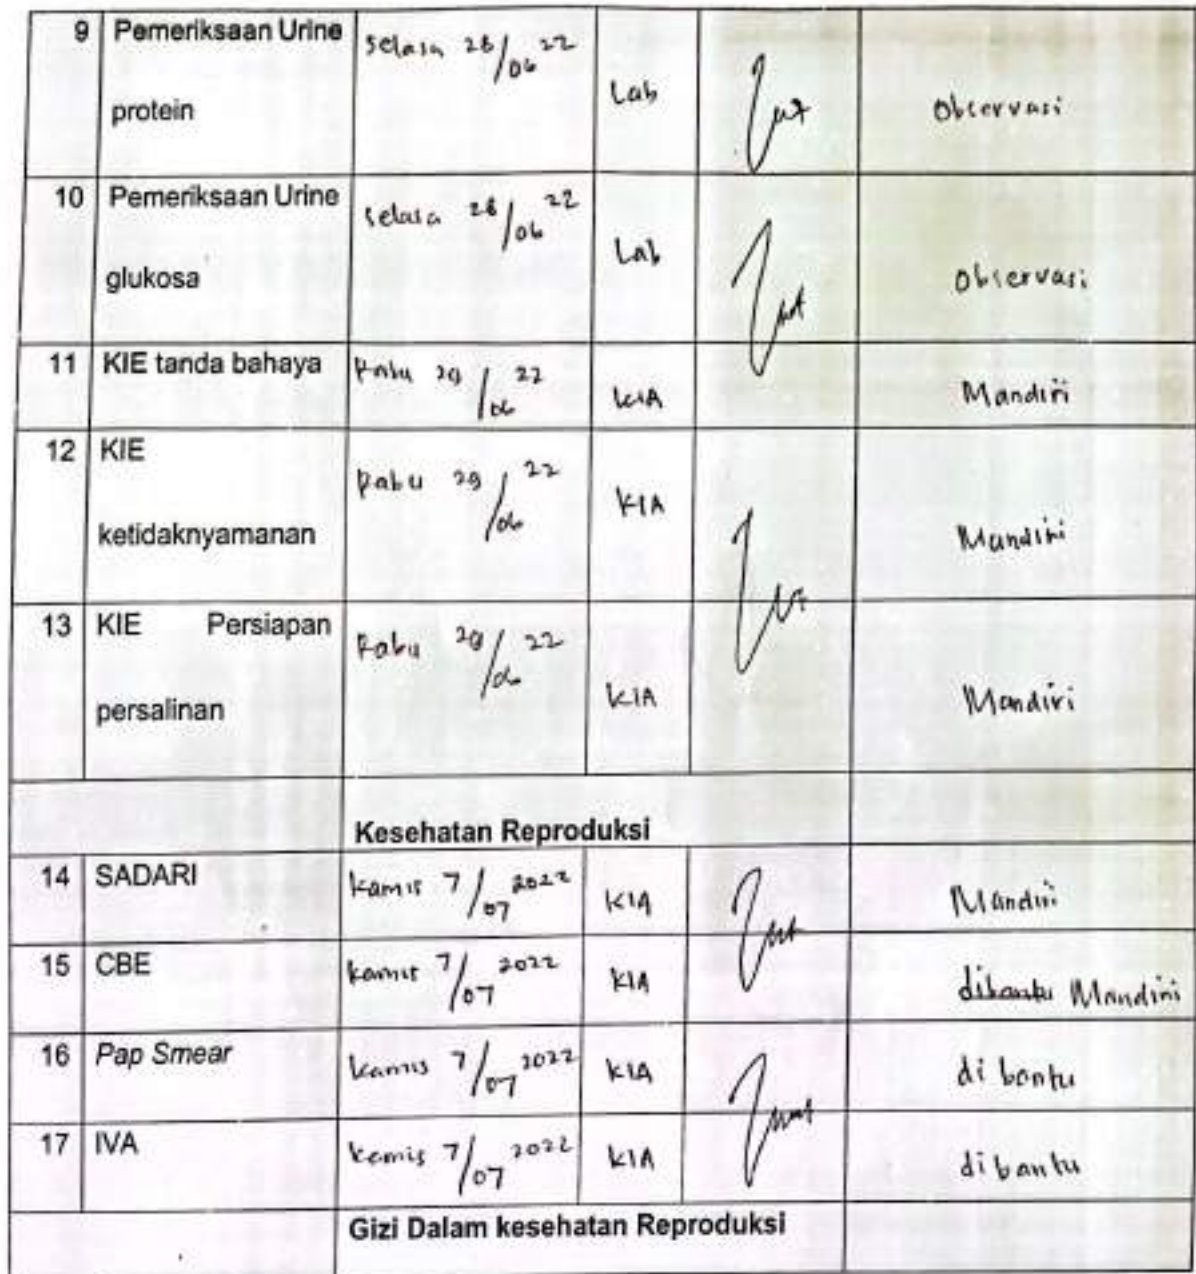 9 Pemeriksaan Urine protein selasa 28/06 22 Lab Observasi
10 Pemeriksaan Urine glukosa selasa 28/06 22 Lab Observasi
11 KIE tanda bahaya Rabu 29/06 22 KIA Mandiri
12 KIE ketidaknyamanan Rabu 29/06 22 KIA Mandiri
13 KIE Persiapan persalinan Rabu 29/06 22 KIA Mandiri
Kesehatan Reproduksi
14 SADARI kamis 7/07 2022 KIA Mandiri
15 CBE kamis 7/07 2022 KIA dibantu Mandiri
16 Pap Smear kamis 7/07 2022 KIA di bantu
17 IVA kamis 7/07 2022 KIA di bantu
Gizi Dalam kesehatan Reproduksi